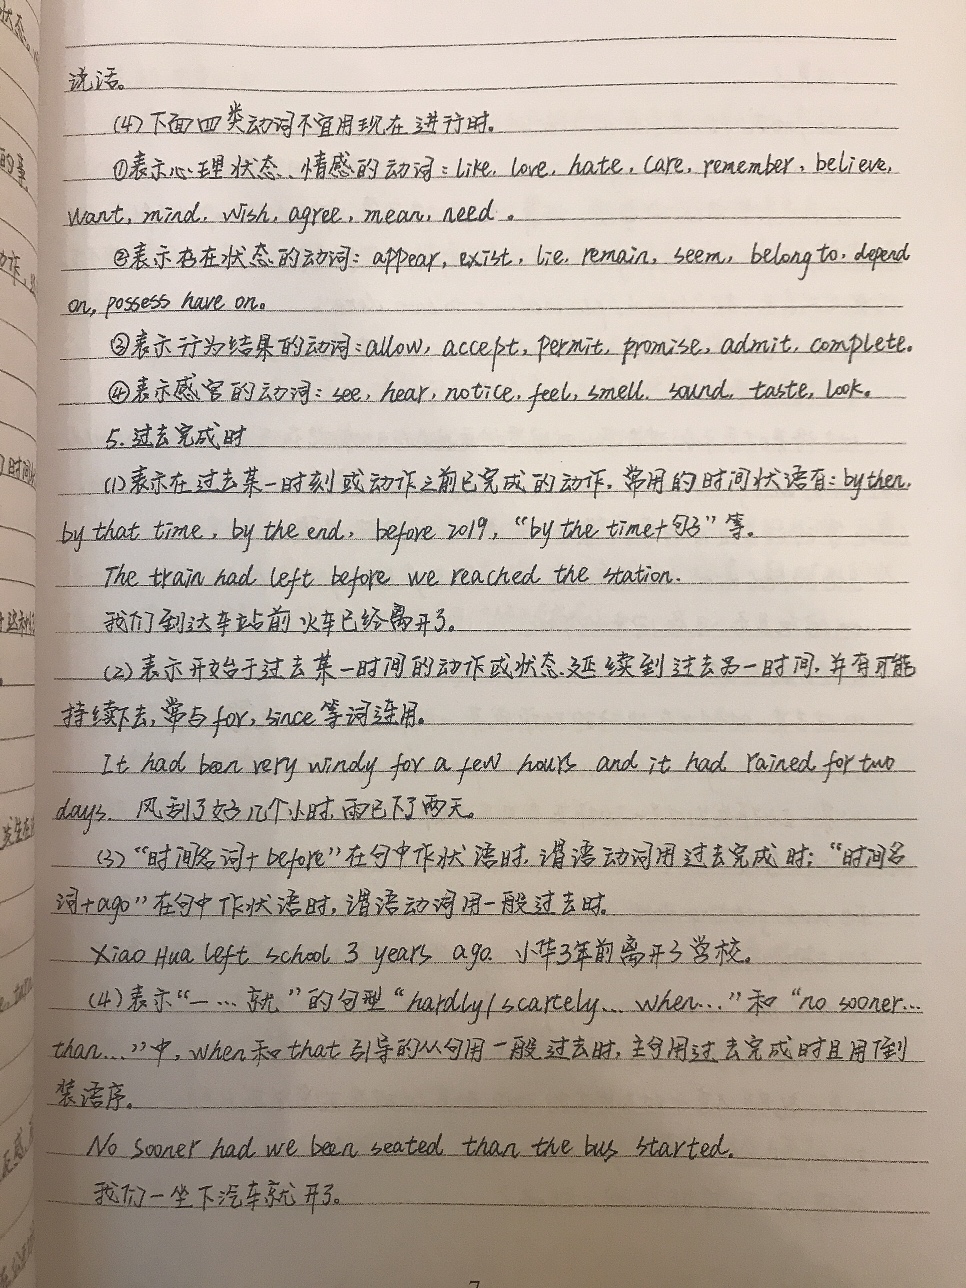 说话。
(4)下面四类动词不宜用现在进行时。
①表示心理状态、情感的动词：like, love, hate, care, remember, believe,
want, mind, wish, agree, mean, need。
②表示存在状态的动词：appear, exist, lie, remain, seem, belong to, depend
on, possess have on。
③表示行为结果的动词：allow, accept, permit, promise, admit, complete.
④表示感官的动词：see, hear, notice, feel, smell, sound, taste, look。
5.过去完成时
(1)表示在过去某一时刻或动作之前已完成的动作。常用的时间状语有：by then,
by that time, by the end, before 2019, “by the time+句子”等。
The train had left before we reached the station.
我们到达车站前火车已经离开了。
(2)表示开始于过去某一时间的动作或状态延续到过去另一时间，并有可能
持续下去，常与for, since等词连用。
It had been very windy for a few hours and it had rained for two
days. 风刮了好几个小时，雨已下了两天。
(3)“时间名词+before”在句中作状语时，谓语动词用过去完成时；“时间名
词+ago”在句中作状语时，谓语动词用一般过去时。
Xiao Hua left school 3 years ago. 小华3年前离开了学校。
(4)表示“一…就”的句型“hardly/scartely...when...”和“no sooner...
than...”中，when和that引导的从句用一般过去时，主句用过去完成时且用倒
装语序。
No sooner had we been seated than the bus started.
我们一坐下汽车就开了。